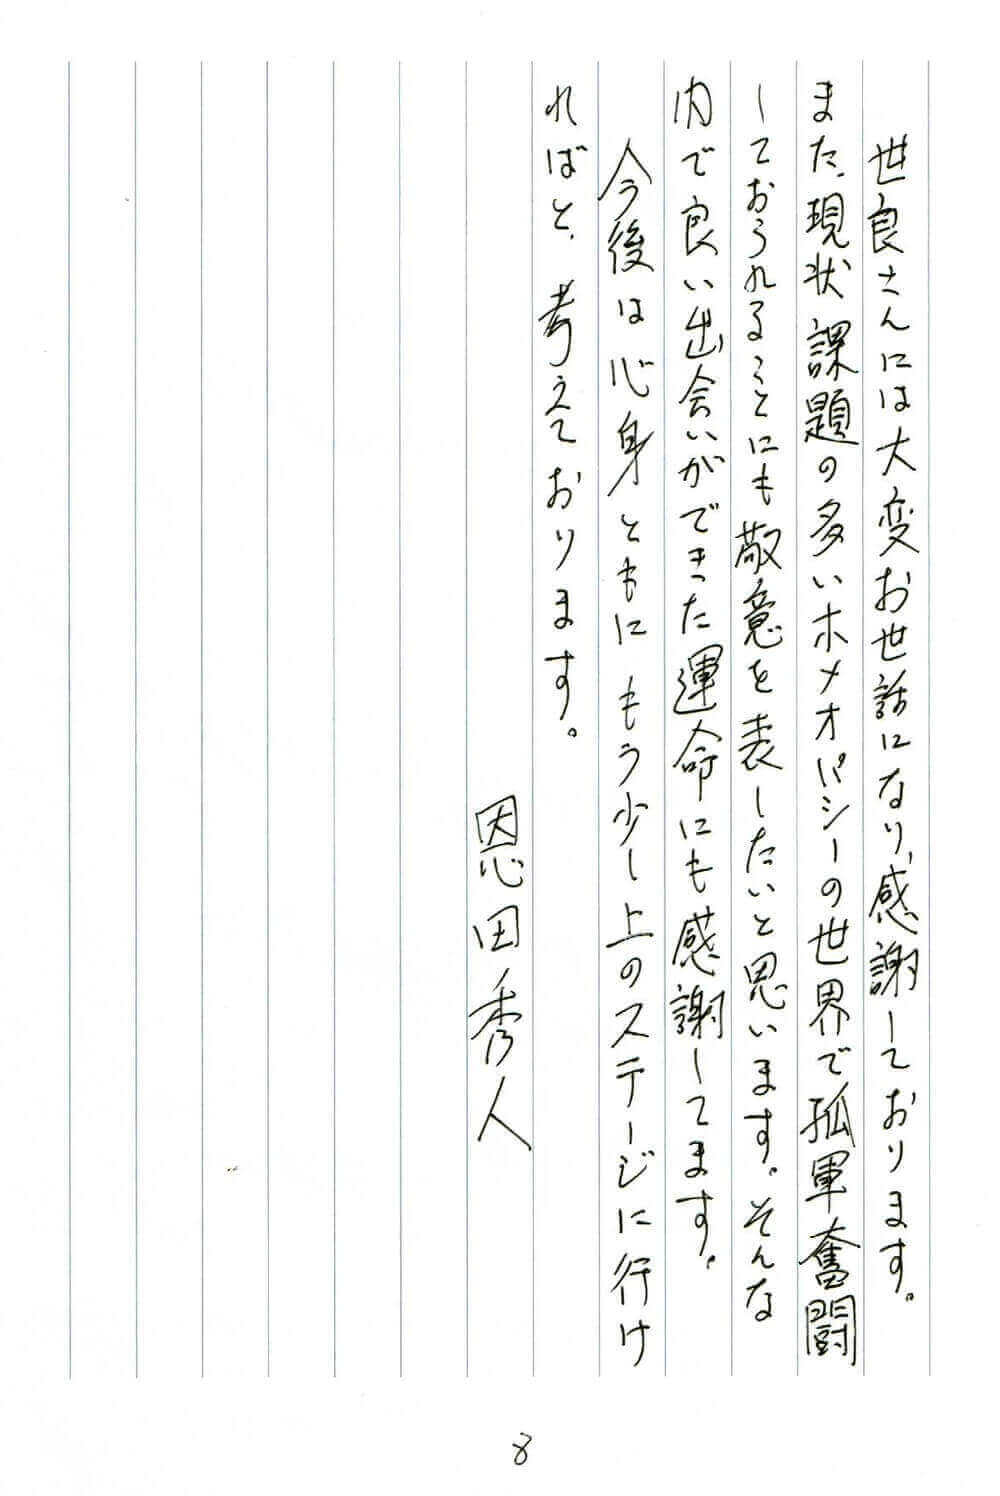 世良さんには大変お世話になり、感謝しております。
また、現状課題の多いホメオパシーの世界で孤軍奮闘
しておられることにも敬意を表したいと思います。そんな
内で良い出会いができた運命にも感謝してます。
今後は心身ともにもう少し上のステージに行け
ればと、考えております。
恩田秀人
8